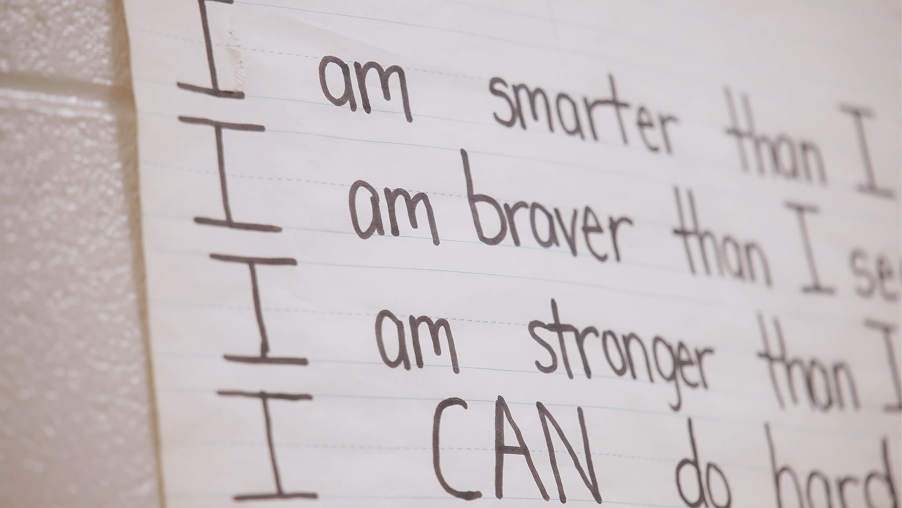 I am smarter than I
I am braver than I
I am stronger than I
I CAN do hard